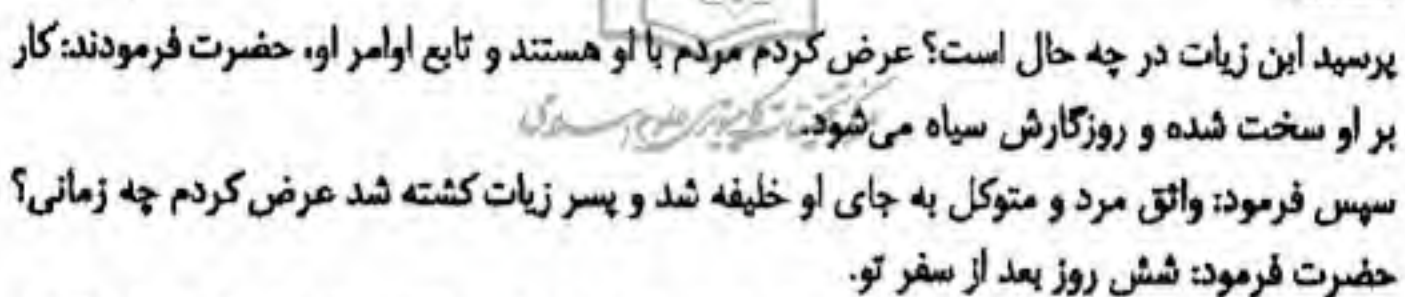 پرسید ابن زیات در چه حال است؟ عرض کردم مردم با او هستند و تابع اوامر او، حضرت فرمودند: کار
بر او سخت شده و روزگارش سیاه می‌شود.
سپس فرمود: واثق مرد و متوکل به جای او خلیفه شد و پسر زیات کشته شد عرض کردم چه زمانی؟
حضرت فرمود: شش روز بعد از سفر تو.